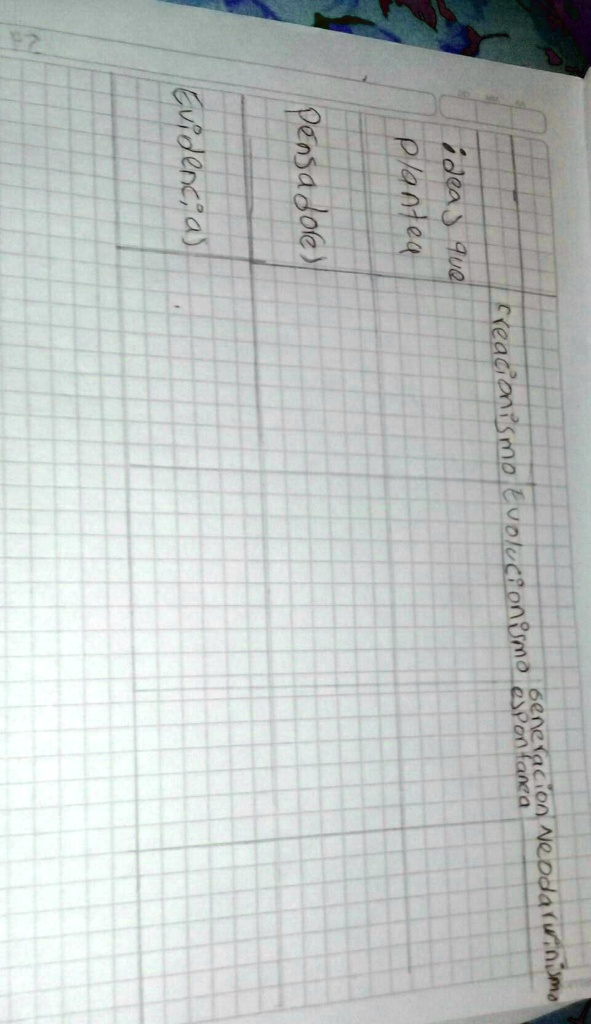 creacionismo
Evolucionismo
generacion
espontanea
Neodarwinismo
ideas que
plantea
Pensador(es)
Evidencias